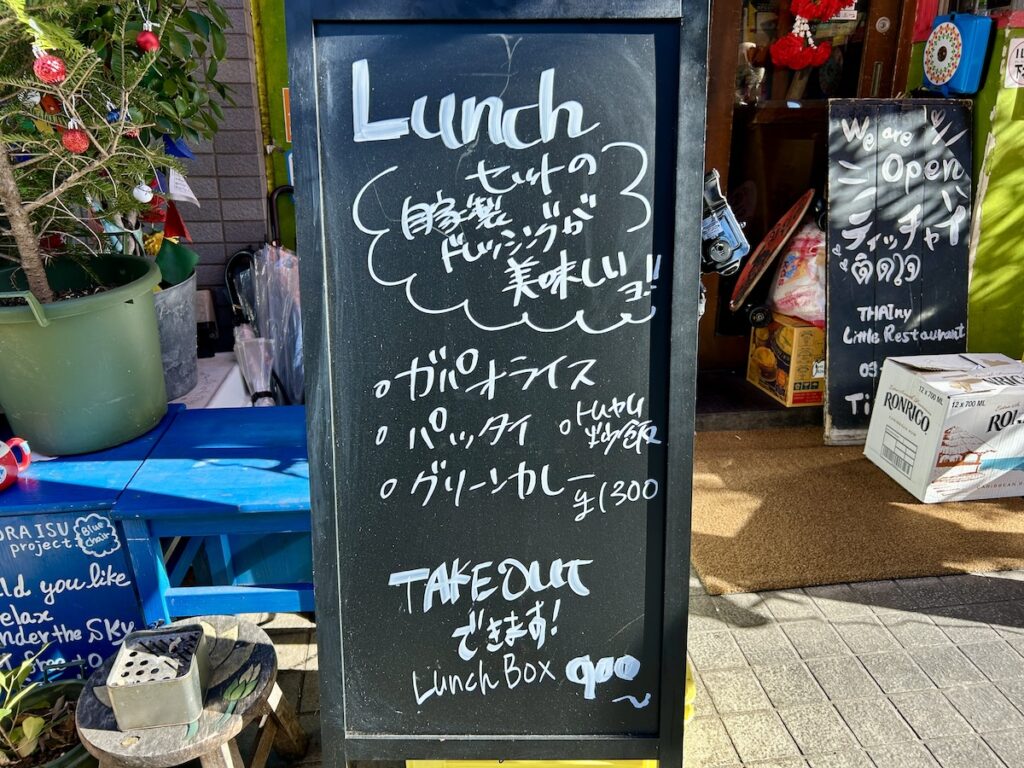 Lunch
セットの
自家製
ドレッシングが
美味しいヨー!!
○ガパオライス
○パッタイ
○トムヤム
炒飯
○グリーンカレー
¥1300
TAKEOUT
できます!
Lunch Box 900~
We are
Open
ティッチャイ
ติดใจ
THAIny
Little Restaurant
03-
Ti
12 x 700 ML
RONRICO
12 x 700 ML
RON
CARIBBEAN
ORAISU
project.
Blue
chair
ld you like
relax
under the SKY